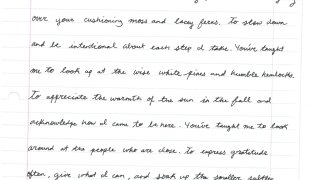 over your cushioning moss and lacey ferns. To slow down
and be intentional about each step I take. You've taught
me to look up at the wise white-pines and humble hemlocks.
To appreciate the warmth of the sun in the fall and
acknowledge how I came to be here. You've taught me to look
around at the people who are close. To express gratitude
often, give what I can, and soak up the smaller subtler